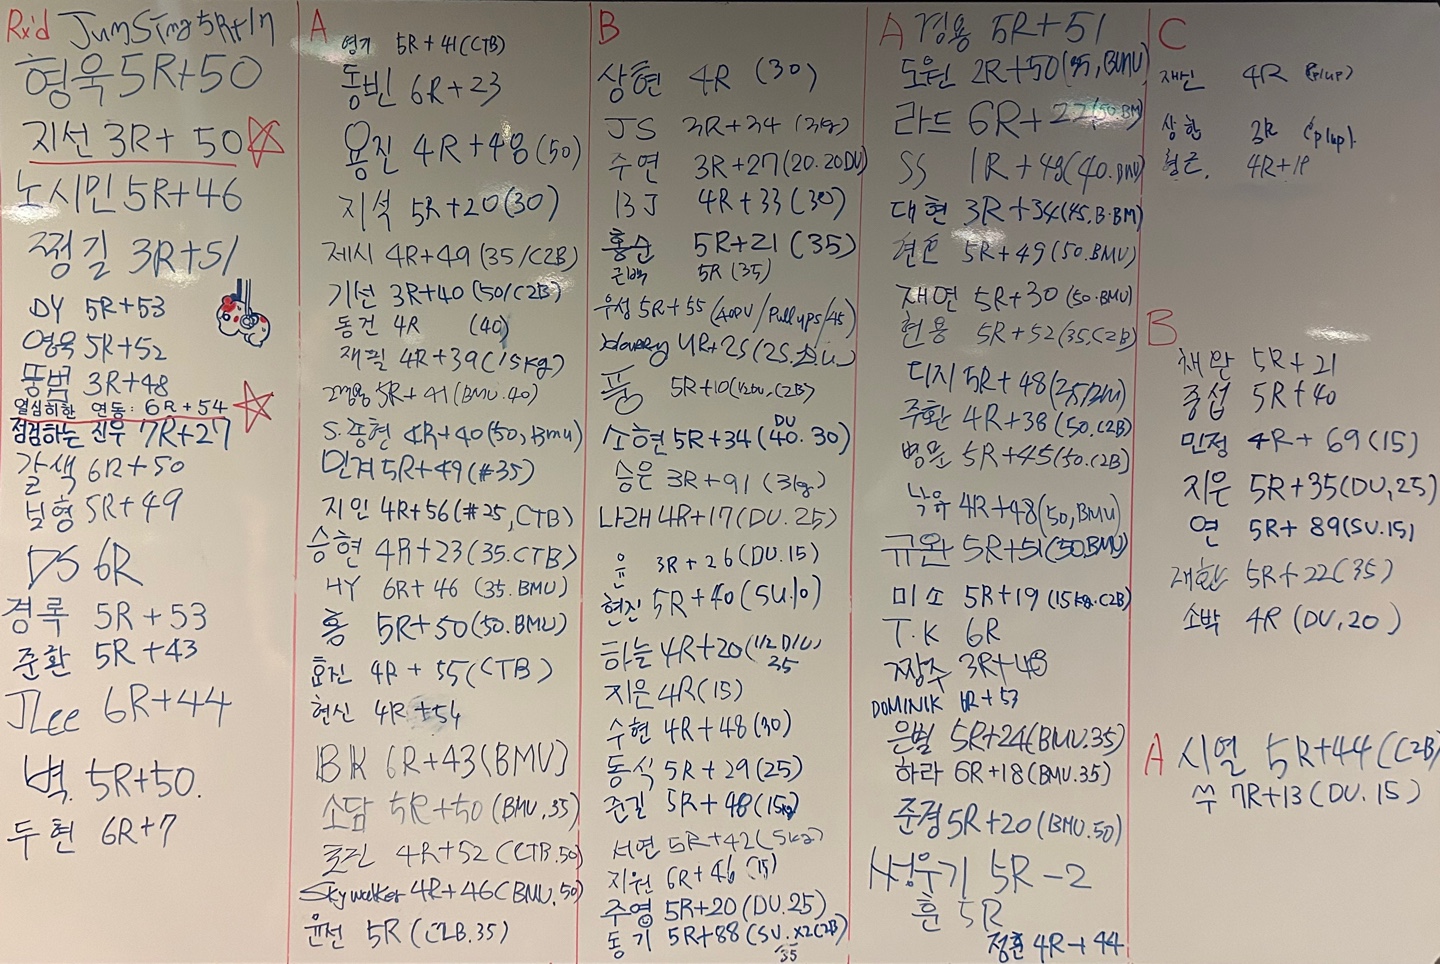 Rx'd JumSing 5R+17
형욱 5R+50
지선 3R+50
노시민 5R+46
쩡길 3R+51
DY 5R+53
영욱 5R+52
뚱범 3R+48
열심히한 연동: 6R+54
점검하는 진우 7R+27
갈색 6R+50
보형 5R+49
DS 6R
경록 5R+53
준환 5R+43
JLee 6R+44
벽. 5R+50.
두현 6R+7
A
영기 5R+41(CTB)
동빈 6R+23
용진 4R+48(50)
지석 5R+20(30)
제시 4R+49(35/C2B)
기선 3R+40(50/C2B)
동건 4R (40)
재필 4R+39(15kg)
5R+41(BMU.40)
S.종현 4R+40(50, Bmu)
민겨 5R+49(#35)
지인 4R+56(#25, CTB)
승현 4R+23(35.CTB)
HY 6R+46(35.BMU)
홍 5R+50(50.BMU)
효진 4R+55(CTB)
현신 4R+54
BK 6R+43(BMU)
소담 5R+50(BMU.35)
4R+52(CTB.50)
Skywalker 4R+46(BMU.50)
윤선 5R(C2B.35)
B
상현 4R (30)
JS 3R+34 (31g)
수연 3R+27(20.20DU)
BJ 4R+33(30)
홍순 5R+21(35)
근백 5R(35)
우성 5R+55(40DU/Pull ups/45)
Harry 4R+25(25.D.U)
품 5R+10(C2B)
소현 5R+34(DU 40.30)
승은 3R+91(31g)
나래 4R+17(DU.25)
윤 3R+26(DU.15)
현진 5R+40(SU.10)
하늘 4R+20(1/2 D/U 35
지은 4R(15)
수현 4R+48(30)
동식 5R+29(25)
준길 5R+48(15kg)
서연 5R+42(5kg)
지원 6R+46(15)
주영 5R+20(DU.25)
동기 5R+88(SU.x2C2B)
35
A 경용 5R+51
도원 2R+50(35, BMU)
라드 6R+22(50.BM)
SS 1R+48(40.BMU)
대현 3R+34(45.B.BM)
현호 5R+49(50.BMU)
재연 5R+30(50.BMU)
현용 5R+52(35.C2B)
디지 5R+48(25/BM)
주환 4R+38(50.C2B)
병문 5R+45(50.C2B)
낙유 4R+48(50, BMU)
규완 5R+51(50.BMU)
미소 5R+19(15kg.C2B)
T.K 6R
짱주 3R+48
DOMINIK 6R+53
은별 5R+24(BMU.35)
하라 6R+18(BMU.35)
준경 5R+20(BMU.50)
성우기 5R-2
훈 5R
정훈 4R+44
C
재신 4R (plup)
상현 3R (plup).
형근. 4R+19
B
채완 5R+21
종섭 5R+40
민정 4R+69(15)
지은 5R+35(DU,25)
연 5R+89(SU.15)
재환 5R+22(35)
소박 4R(DU,20)
A 시열 5R+44(C2B)
쑤 7R+13(DU.15)